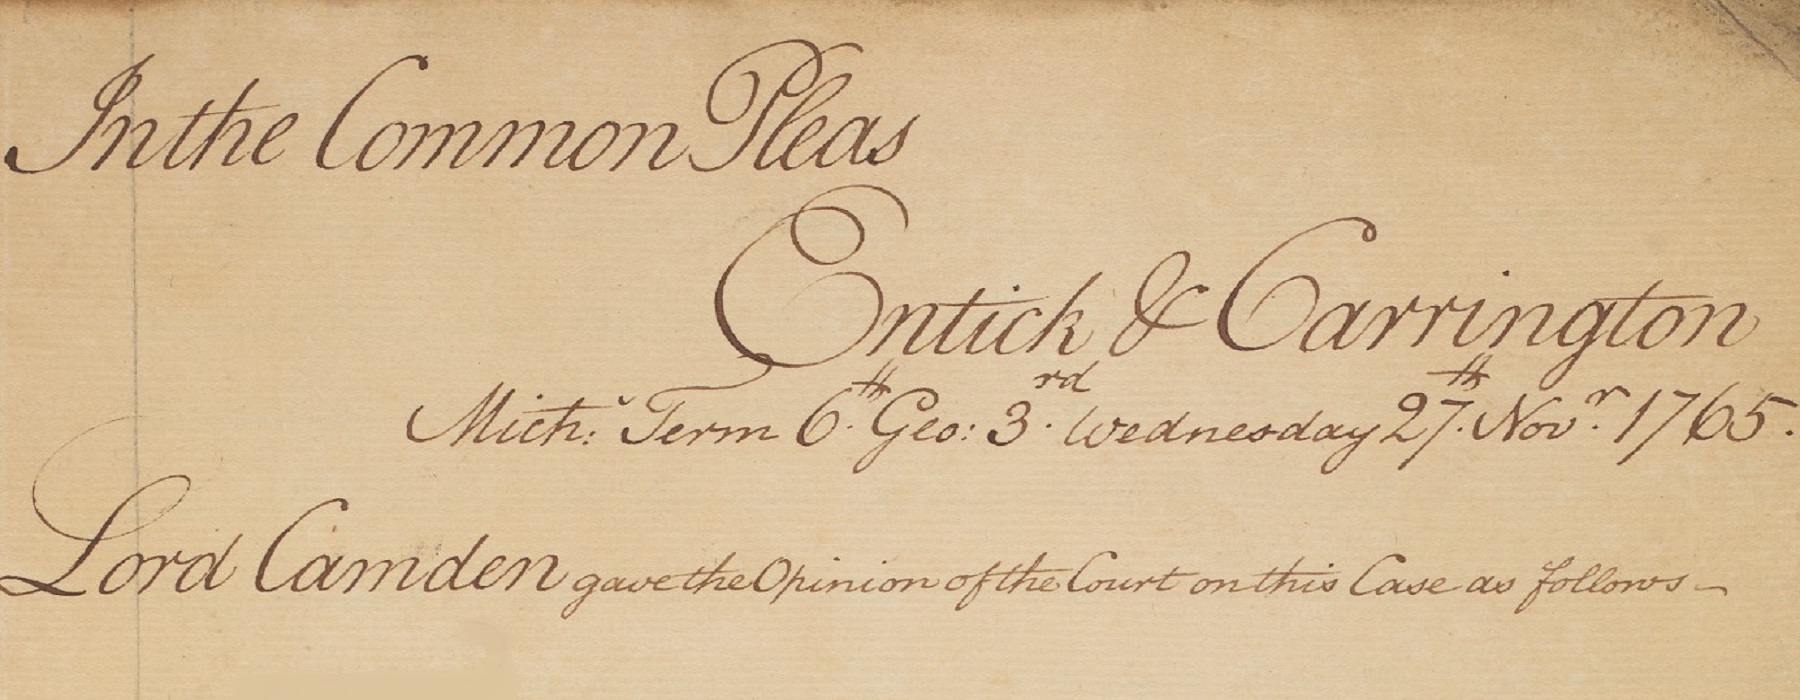 In the Common Pleas
Entick & Carrington
Mich: Term 6th. Geo: 3rd. Wednesday 27th. Novr. 1765.
Lord Camden gave the Opinion of the Court on this Case as follows –